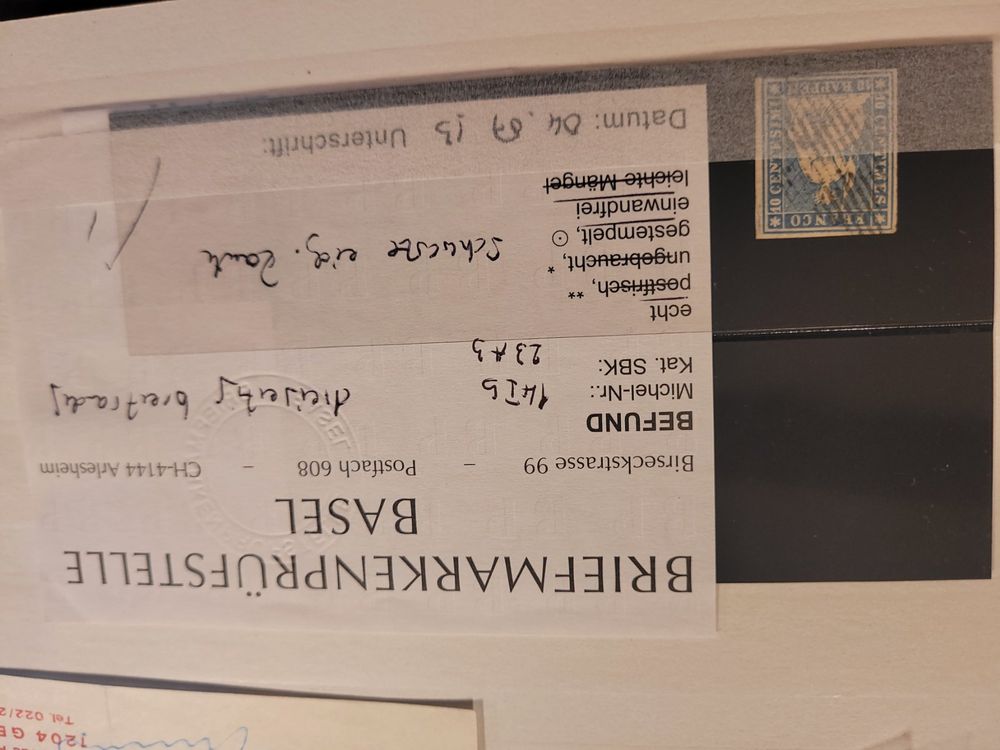 BRIEFMARKENPRÜFSTELLE
BASEL
Birseckstrasse 99 – Postfach 608 – CH-4144 Arlesheim
BEFUND
Michel-Nr.: 14 I b dreiseitig breitrandig
Kat. SBK: 23 A 3
echt
postfrisch, **
ungebraucht, *
gestempelt, ⊙
einwandfrei
leichte Mängel
Datum: 04.07.13 Unterschrift:
FRANCO
10 CENTIMES
10 RAPPEN
10 CENTESIMI
1204 GE
Tel. 022/2